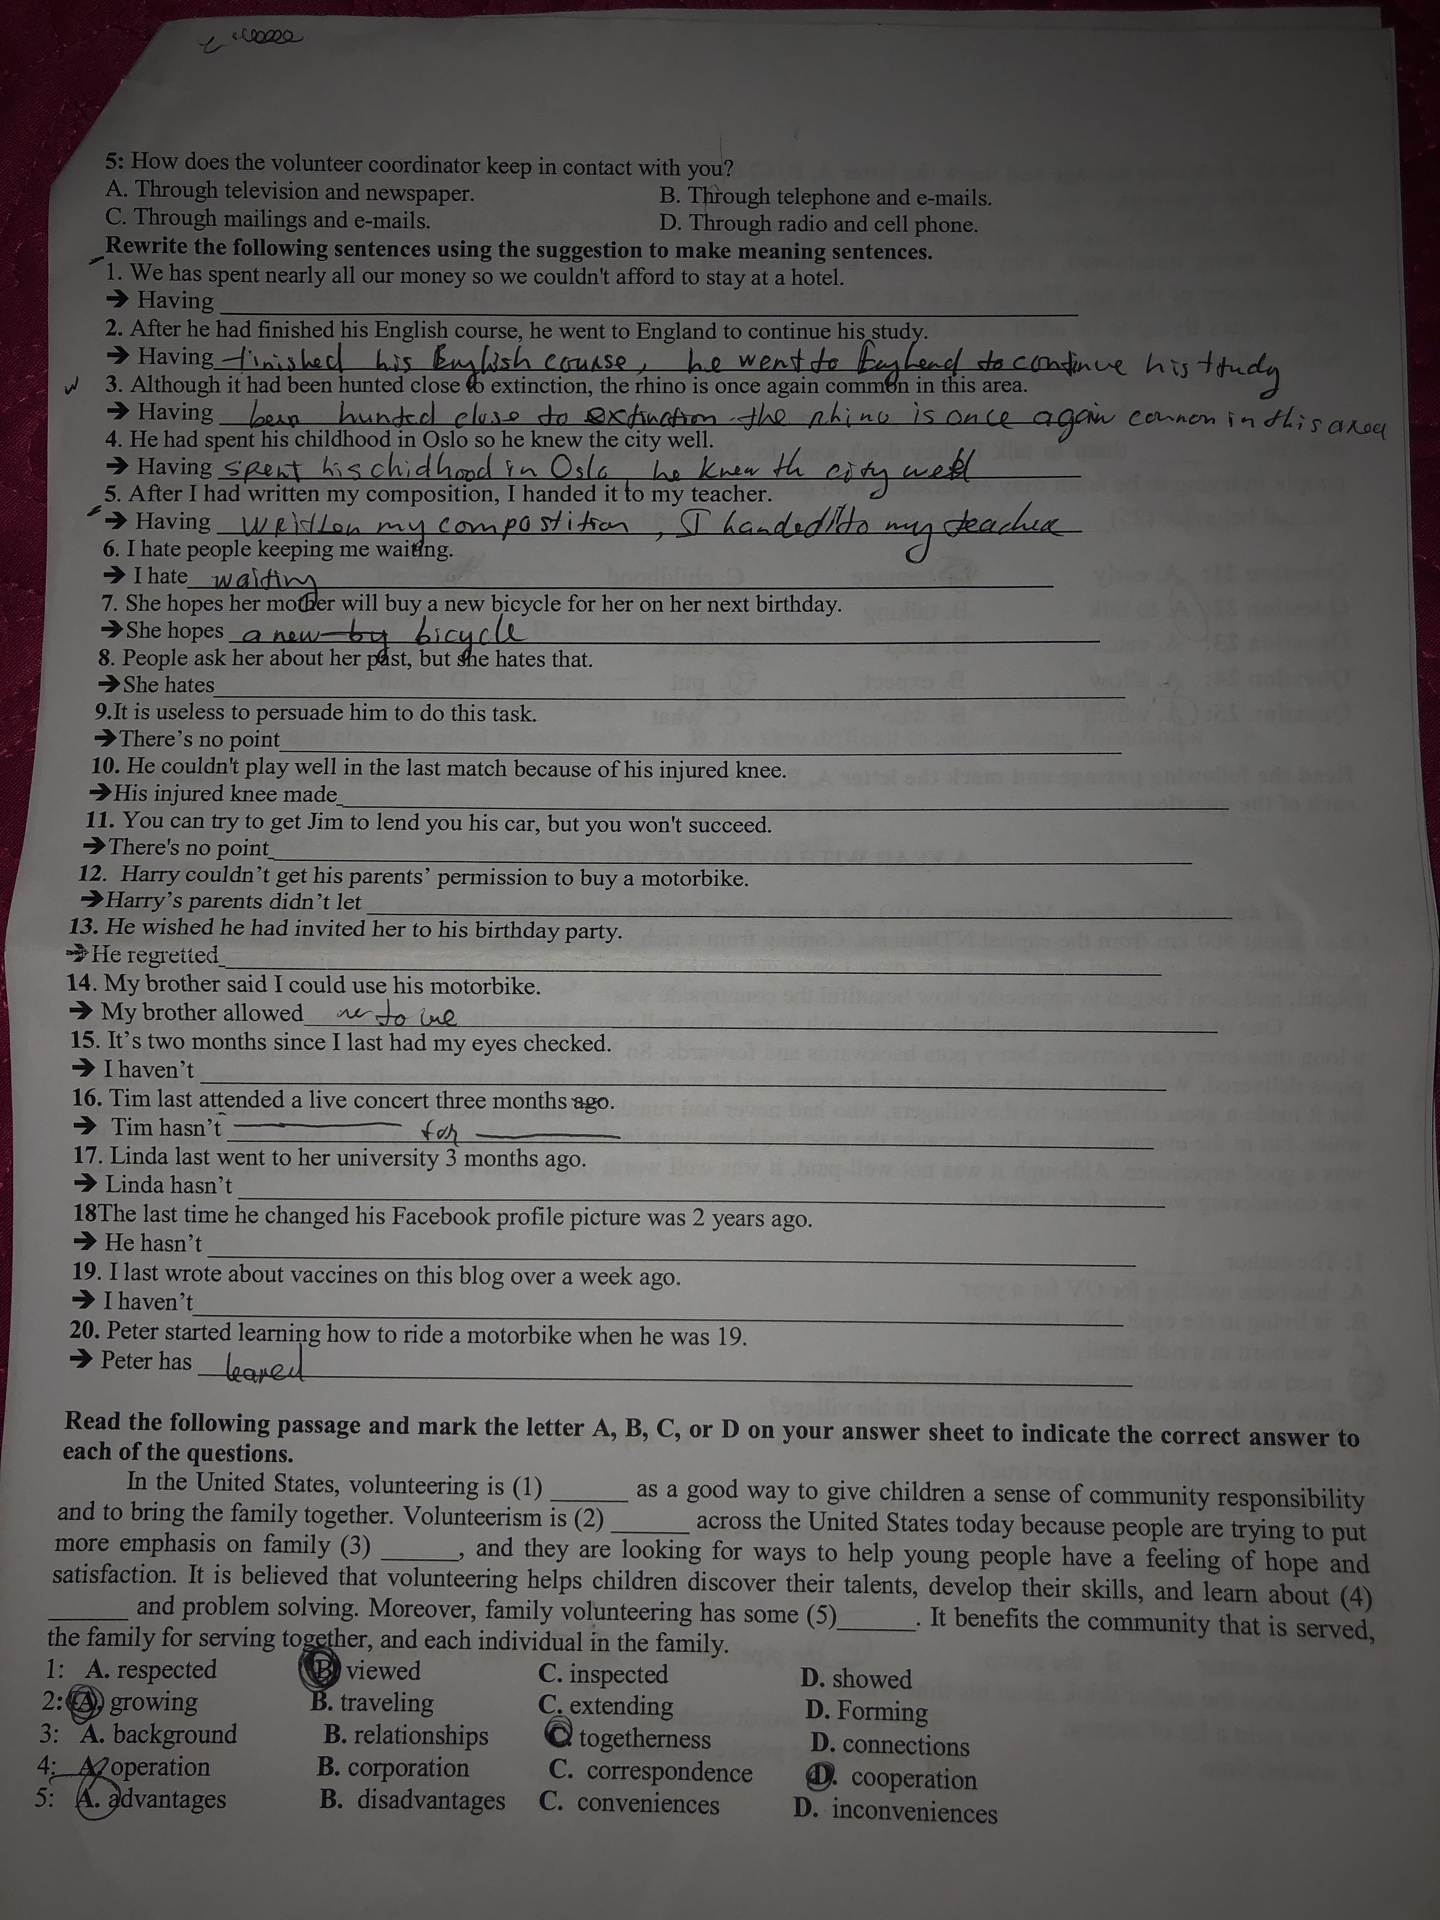 5: How does the volunteer coordinator keep in contact with you?
A. Through television and newspaper. B. Through telephone and e-mails.
C. Through mailings and e-mails. D. Through radio and cell phone.
Rewrite the following sentences using the suggestion to make meaning sentences.
1. We has spent nearly all our money so we couldn't afford to stay at a hotel.
➔ Having
2. After he had finished his English course, he went to England to continue his study.
➔ Having finished his English course, he went to England to continue his study
3. Although it had been hunted close to extinction, the rhino is once again common in this area.
➔ Having been hunted close to extinction the rhino is once again common in this area
4. He had spent his childhood in Oslo so he knew the city well.
➔ Having spent his chidhood in Oslo, he knew th city well
5. After I had written my composition, I handed it to my teacher.
➔ Having written my compostition, I handed it to my teacher
6. I hate people keeping me waiting.
➔ I hate waiting
7. She hopes her mother will buy a new bicycle for her on her next birthday.
➔She hopes a new by bicycle
8. People ask her about her past, but she hates that.
➔She hates
9.It is useless to persuade him to do this task.
➔There's no point
10. He couldn't play well in the last match because of his injured knee.
➔His injured knee made
11. You can try to get Jim to lend you his car, but you won't succeed.
➔There's no point
12. Harry couldn't get his parents' permission to buy a motorbike.
➔Harry's parents didn't let
13. He wished he had invited her to his birthday party.
➔He regretted
14. My brother said I could use his motorbike.
➔ My brother allowed me to use
15. It's two months since I last had my eyes checked.
➔ I haven't
16. Tim last attended a live concert three months ago.
➔ Tim hasn't for
17. Linda last went to her university 3 months ago.
➔ Linda hasn't
18The last time he changed his Facebook profile picture was 2 years ago.
➔ He hasn't
19. I last wrote about vaccines on this blog over a week ago.
➔ I haven't
20. Peter started learning how to ride a motorbike when he was 19.
➔ Peter has leared
Read the following passage and mark the letter A, B, C, or D on your answer sheet to indicate the correct answer to
each of the questions.
In the United States, volunteering is (1) ______ as a good way to give children a sense of community responsibility
and to bring the family together. Volunteerism is (2) ______ across the United States today because people are trying to put
more emphasis on family (3) ______, and they are looking for ways to help young people have a feeling of hope and
satisfaction. It is believed that volunteering helps children discover their talents, develop their skills, and learn about (4)
______ and problem solving. Moreover, family volunteering has some (5)______. It benefits the community that is served,
the family for serving together, and each individual in the family.
1: A. respected B. viewed C. inspected D. showed
2: A. growing B. traveling C. extending D. Forming
3: A. background B. relationships C. togetherness D. connections
4: A. operation B. corporation C. correspondence D. cooperation
5: A. advantages B. disadvantages C. conveniences D. inconveniences